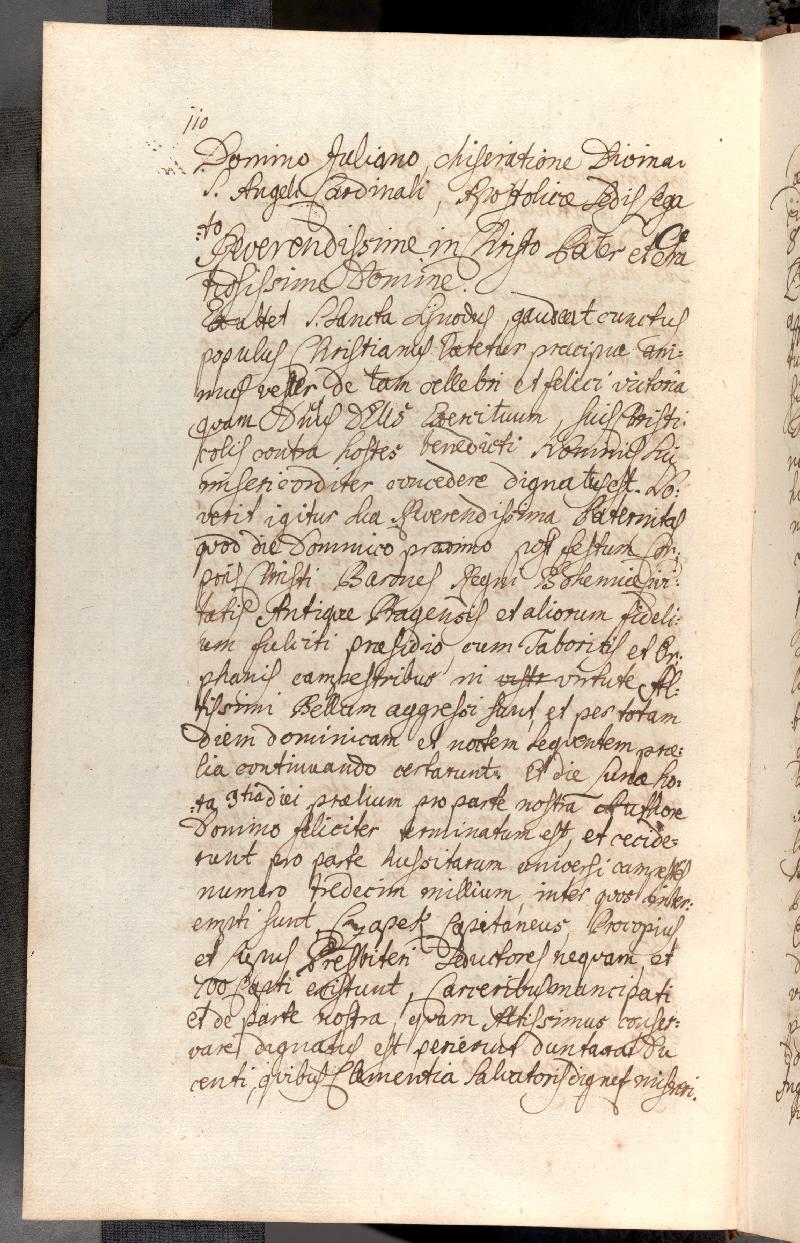 110
Domino Juliano, Miseratione Divina
S. Angeli Cardinali, Apostolicæ Sedis Lega
:to.
Reverendissime in Christo Pater et Gra
tiosissime Domine.
Exultet S. Sancta Synodus, gaudeat cunctus
populus Christianus Lætetur præcipue ani:
mus vester de tam cellebri et felici victoria
quam Dnus DEus Exercituum, suis Christi:
colis contra hostes benedicti Nominis Sui
misericorditer concedere dignatus est. No:
verit igitur Sua Reverendissima Paternitas
quod die Dominico proximo post festum Cor:
poris Christi Barones Regni Bohemiæ Civi:
tatis Antiquæ Pragensis et aliorum fideli:
um fulciti præsidio, cum Taboritis et Or:
phanis campestribus in virtute Al:
tissimi Bellum aggressi sunt, et per totam
diem dominicam et noctem sequentem præ:
lia continuando certarunt. Et die Lunæ ho:
:ra 3tia diei prælium pro parte nostra Authore
Domino feliciter terminatum est, et cecide:
runt pro parte hussitarum universi campestres
numero tredecim millium, inter quos inter:
empti sunt, Czapek Capitaneus, Procopius
et Lupus Presbiteri Seductores nequam, et
700 Capti existunt, Carceribus mancipati
et de parte nostra, quam Altissimus conser:
vare dignatus est perierunt duntaxat Du
centi, quibus Clementia Salvatoris dignet miseri.